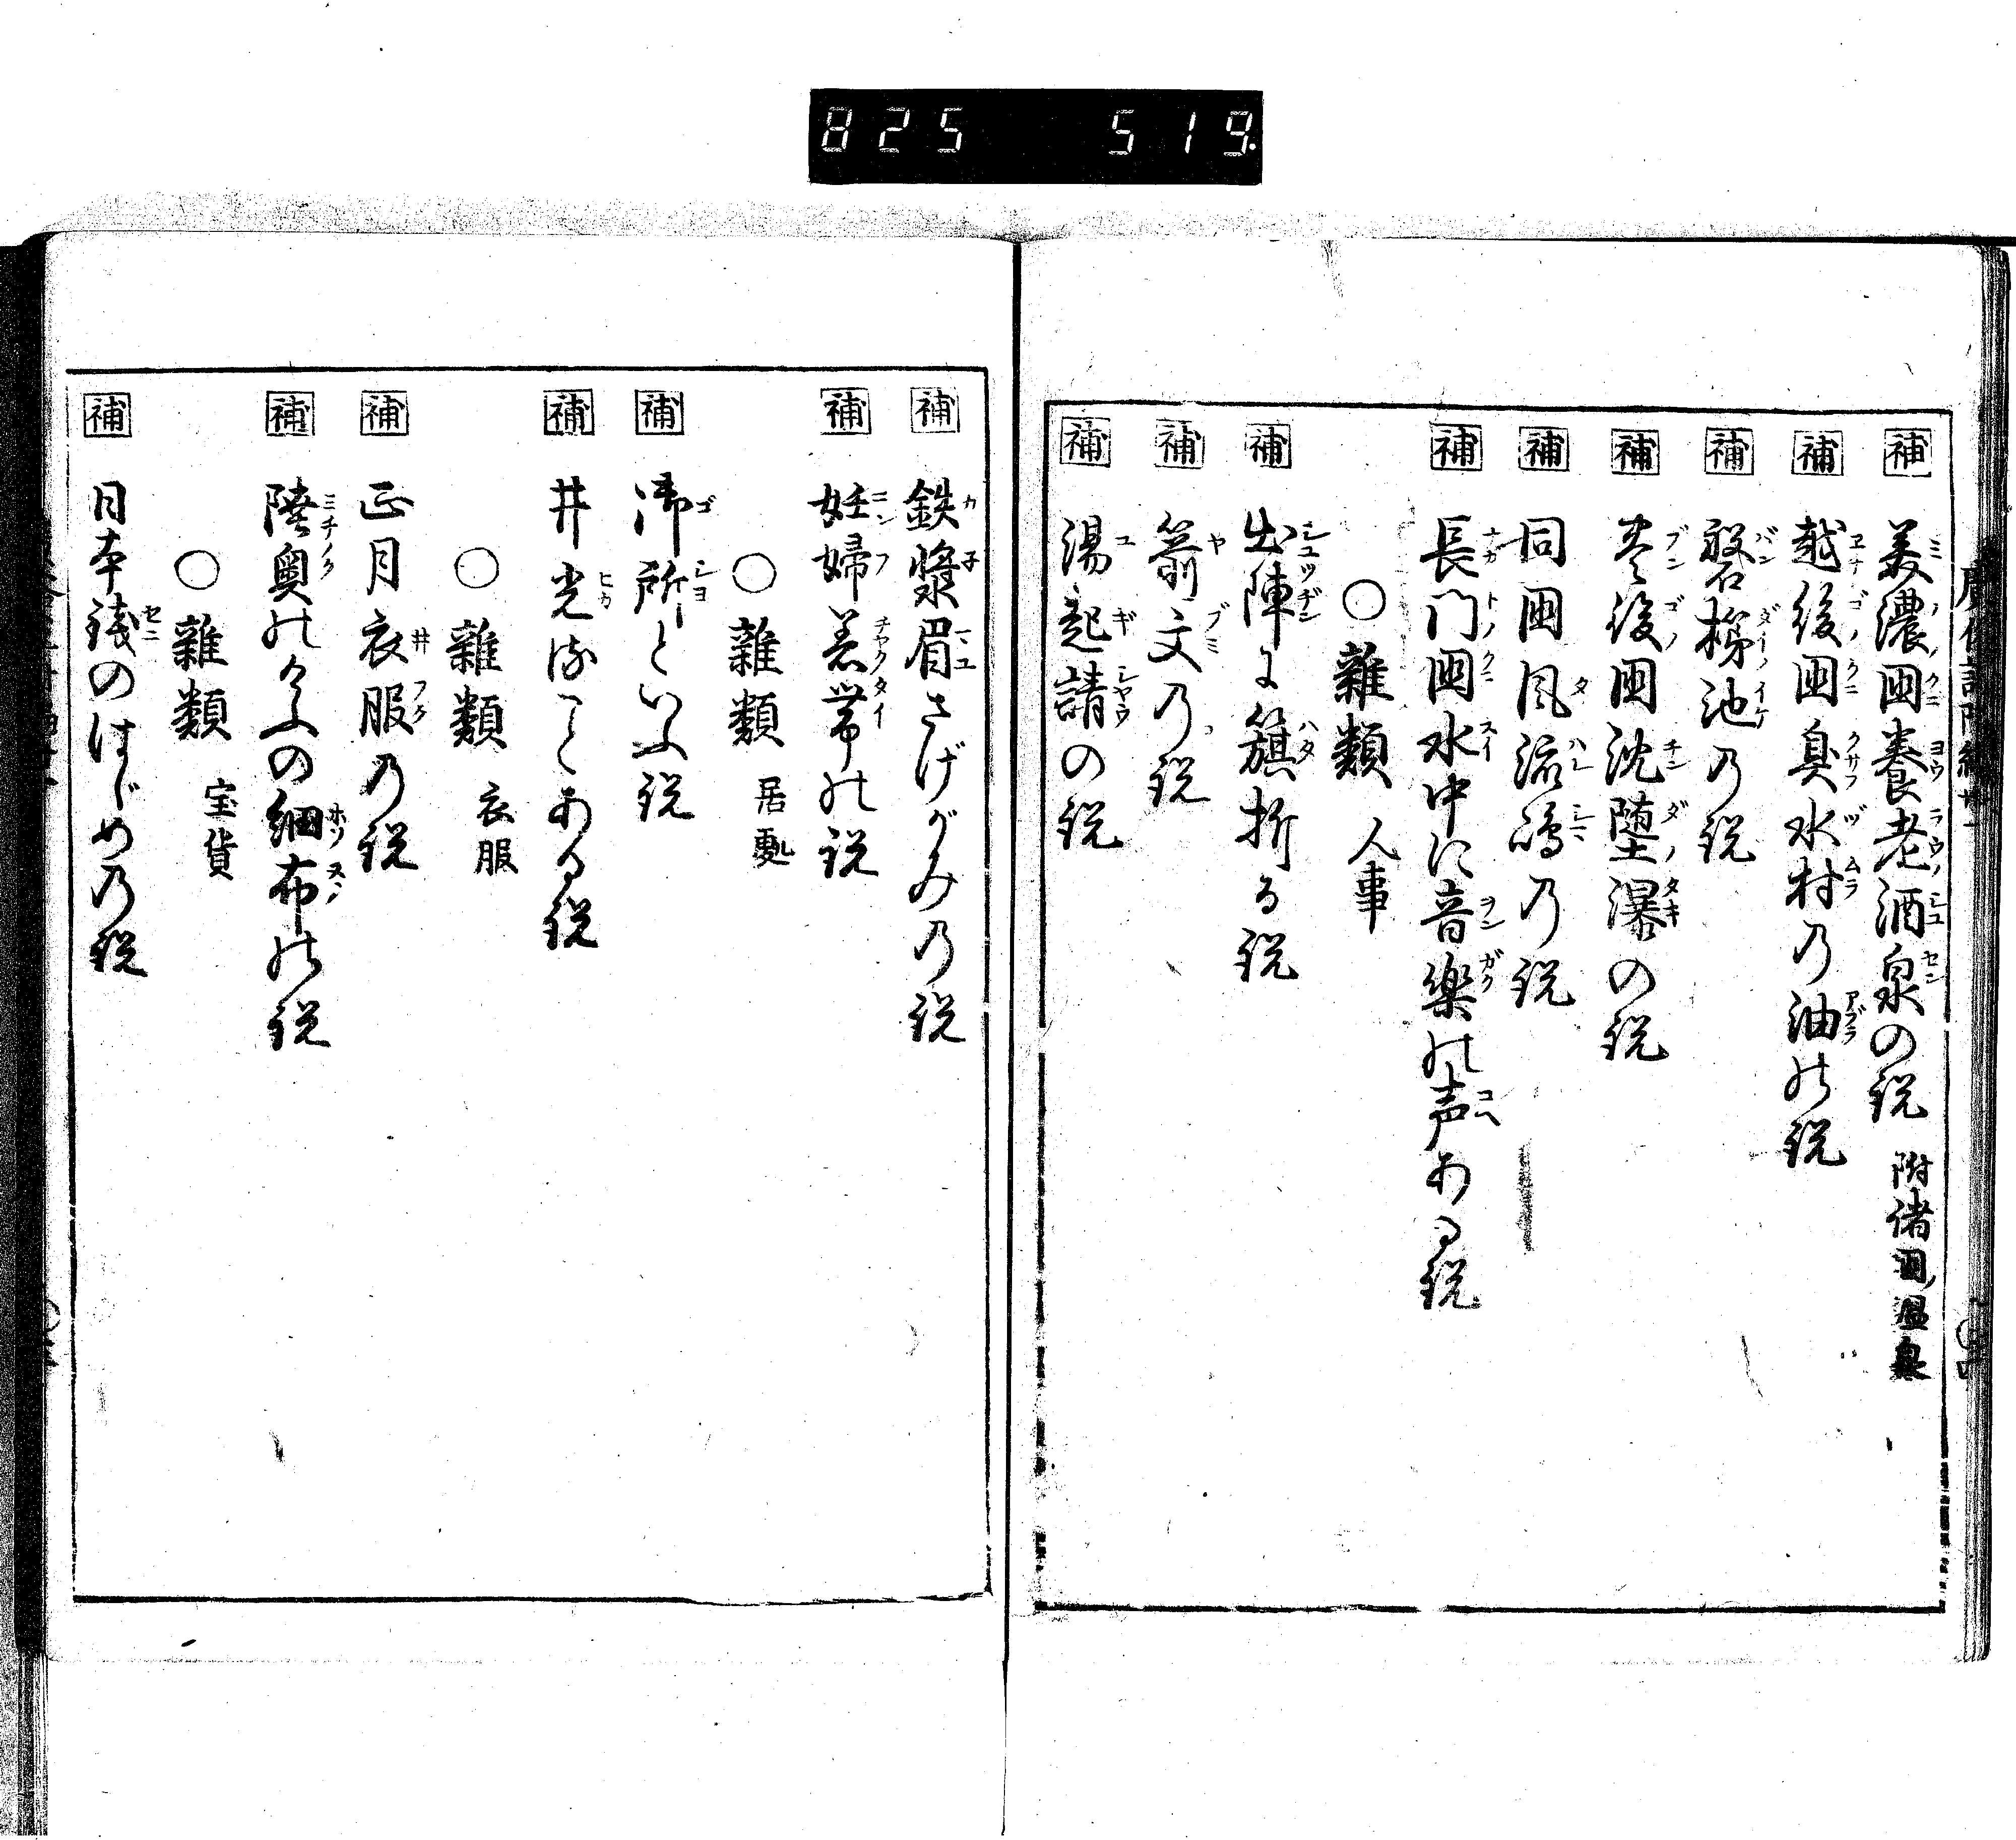 825 519
補 美濃国養老酒泉の説 附諸国ノ温泉
補 越後国臭水村の油の説
補 磐梯池の説
補 豊後国沈堕瀑の説
補 同国風流嶋の説
補 長門国水中に音楽の声ある説
○雑類 人事
補 出陣に籏折る説
補 箭文の説
補 湯起請の説
補 鉄漿眉さげがみの説
補 妊婦着帯の説
○雑類 居処
補 御所といふ説
補 井光ることある説
○雑類 衣服
補 正月衣服の説
補 陸奥のけふの細布の説
○雑類 宝貨
補 日本銭のはじめの説